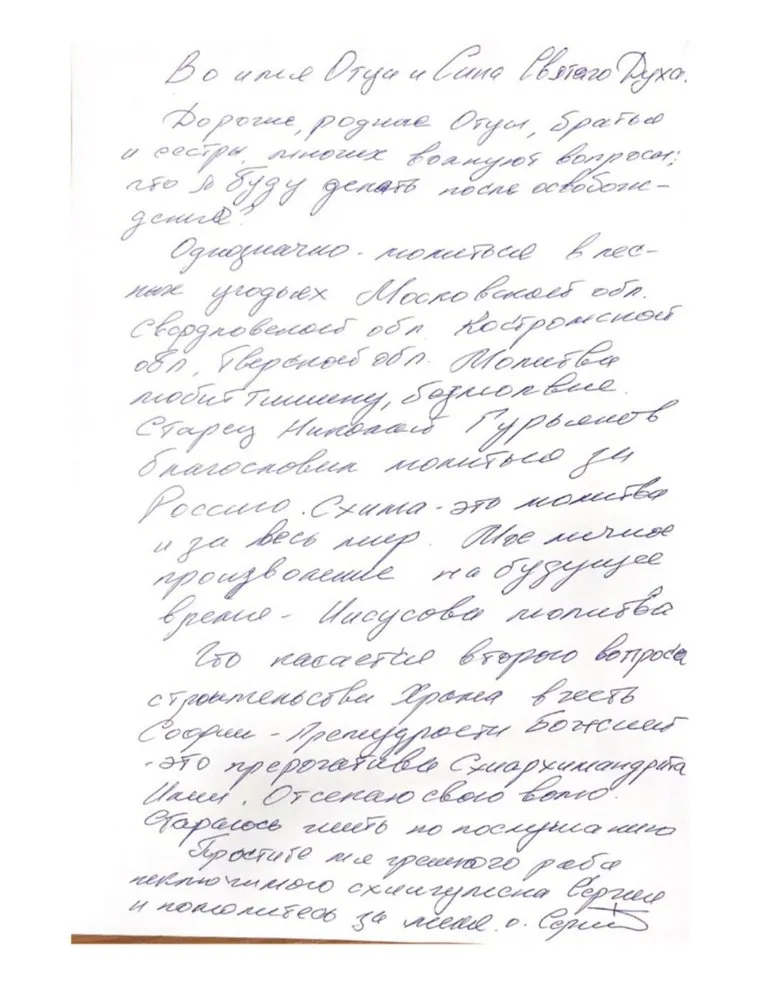 Во имя Отца и Сына Святаго Духа.
Дорогие, родные Отцы, братья
и сестры, многих волнуют вопросы:
что я буду делать после освобож-
дения?
Однозначно - молиться в лес-
ных угодьях Московской обл.
Свердловской обл. Костромской
обл, Тверской обл. Молитва
любит тишину, безмолвие.
Старец Николай Гурьянов
благословил молиться за
Россию. Схима - это молитва
и за весь мир. Мое личное
произволение на будущее
время - Иисусова молитва
Что касается второго вопроса
строительства Храма в честь
Софии - Премудрости Божией
- это прерогатива Схиархимандрита
Илии. Отсекаю свою волю.
Стараюсь жить по послушанию
Простите мя грешного раба
неключимого схиигумена Сергия
и помолитесь за меня. о. Сергий